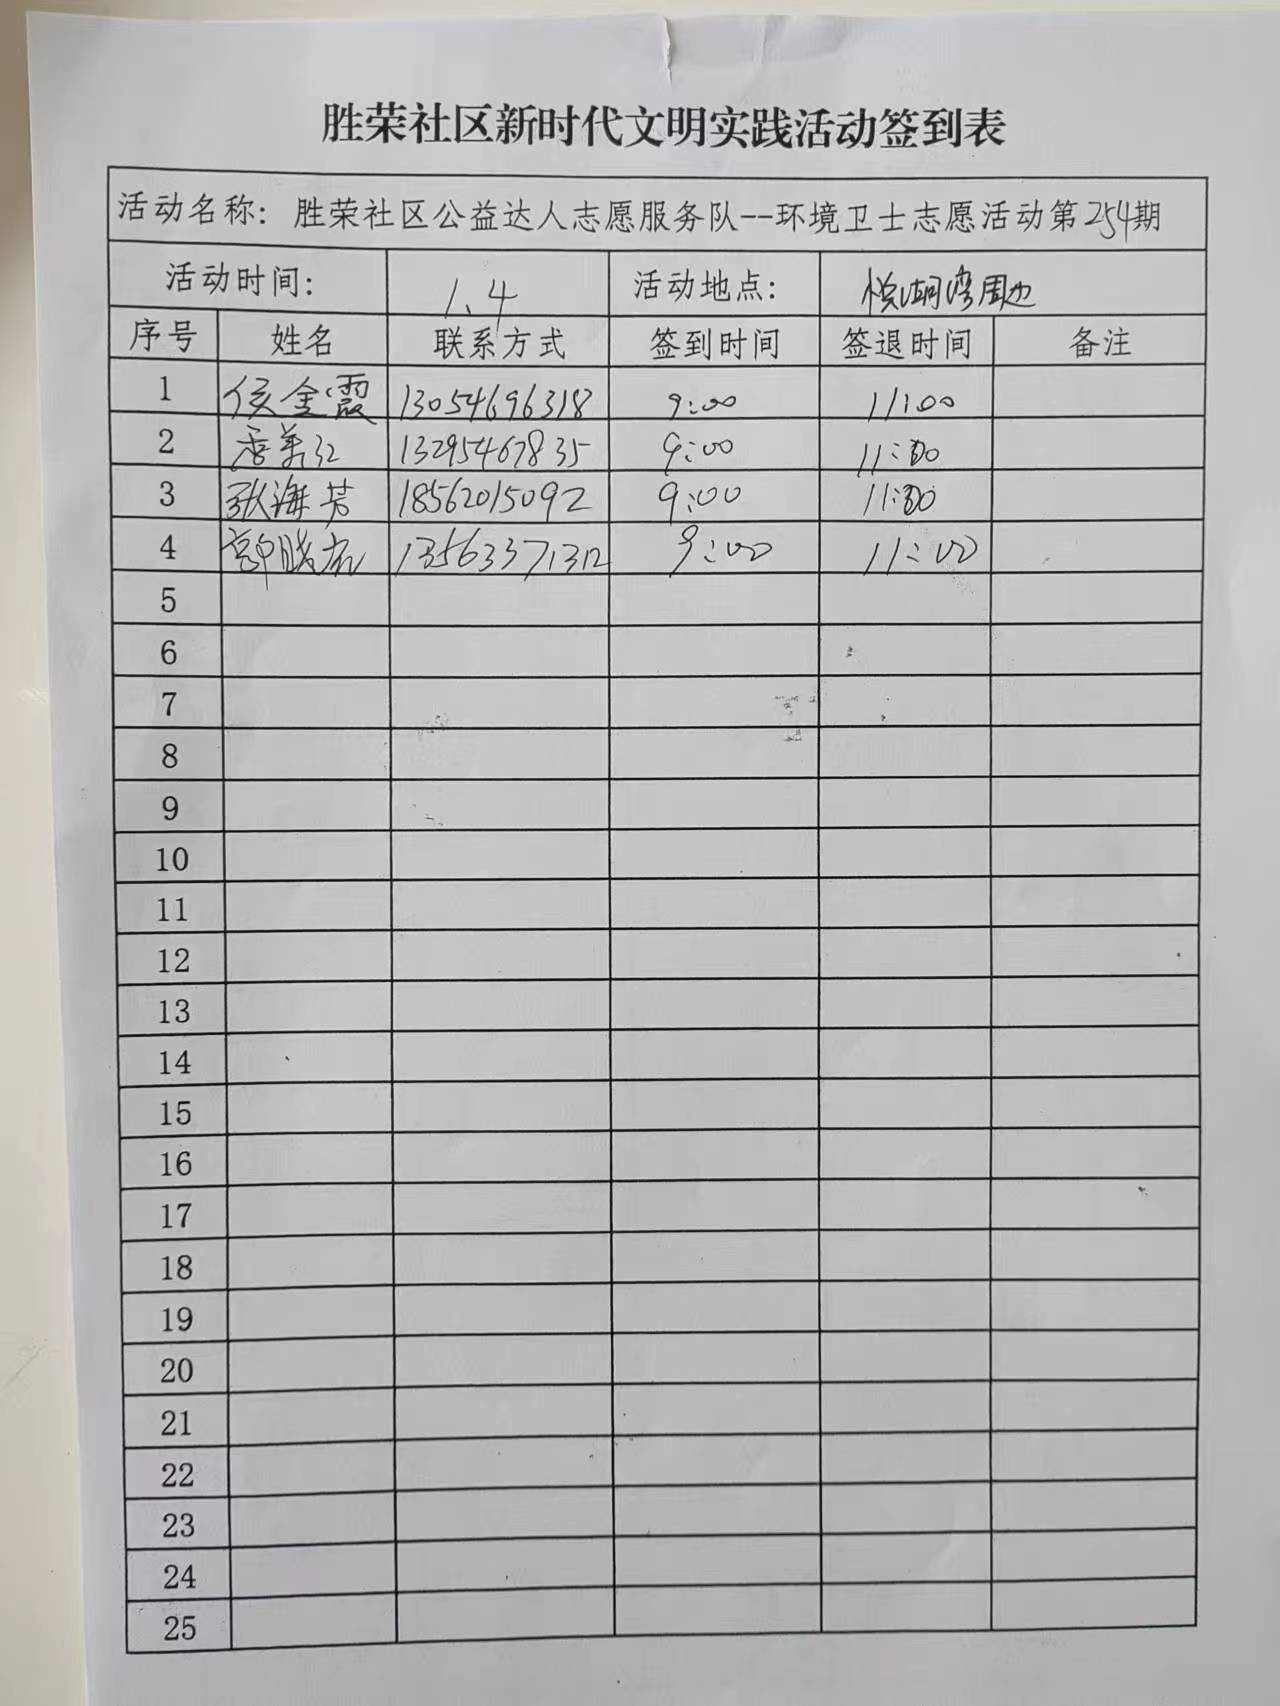 胜荣社区新时代文明实践活动签到表
活动名称：胜荣社区公益达人志愿服务队--环境卫士志愿活动第254期
活动时间： 1.4 活动地点： 悦湖湾周边
序号 姓名 联系方式 签到时间 签退时间 备注
1 侯金霞 13054696318 9:00 11:00
2 13295467835 9:00 11:00
3 张海芳 18562015092 9:00 11:00
4 郭晓 13563371312 9:00 11:00
5
6
7
8
9
10
11
12
13
14
15
16
17
18
19
20
21
22
23
24
25